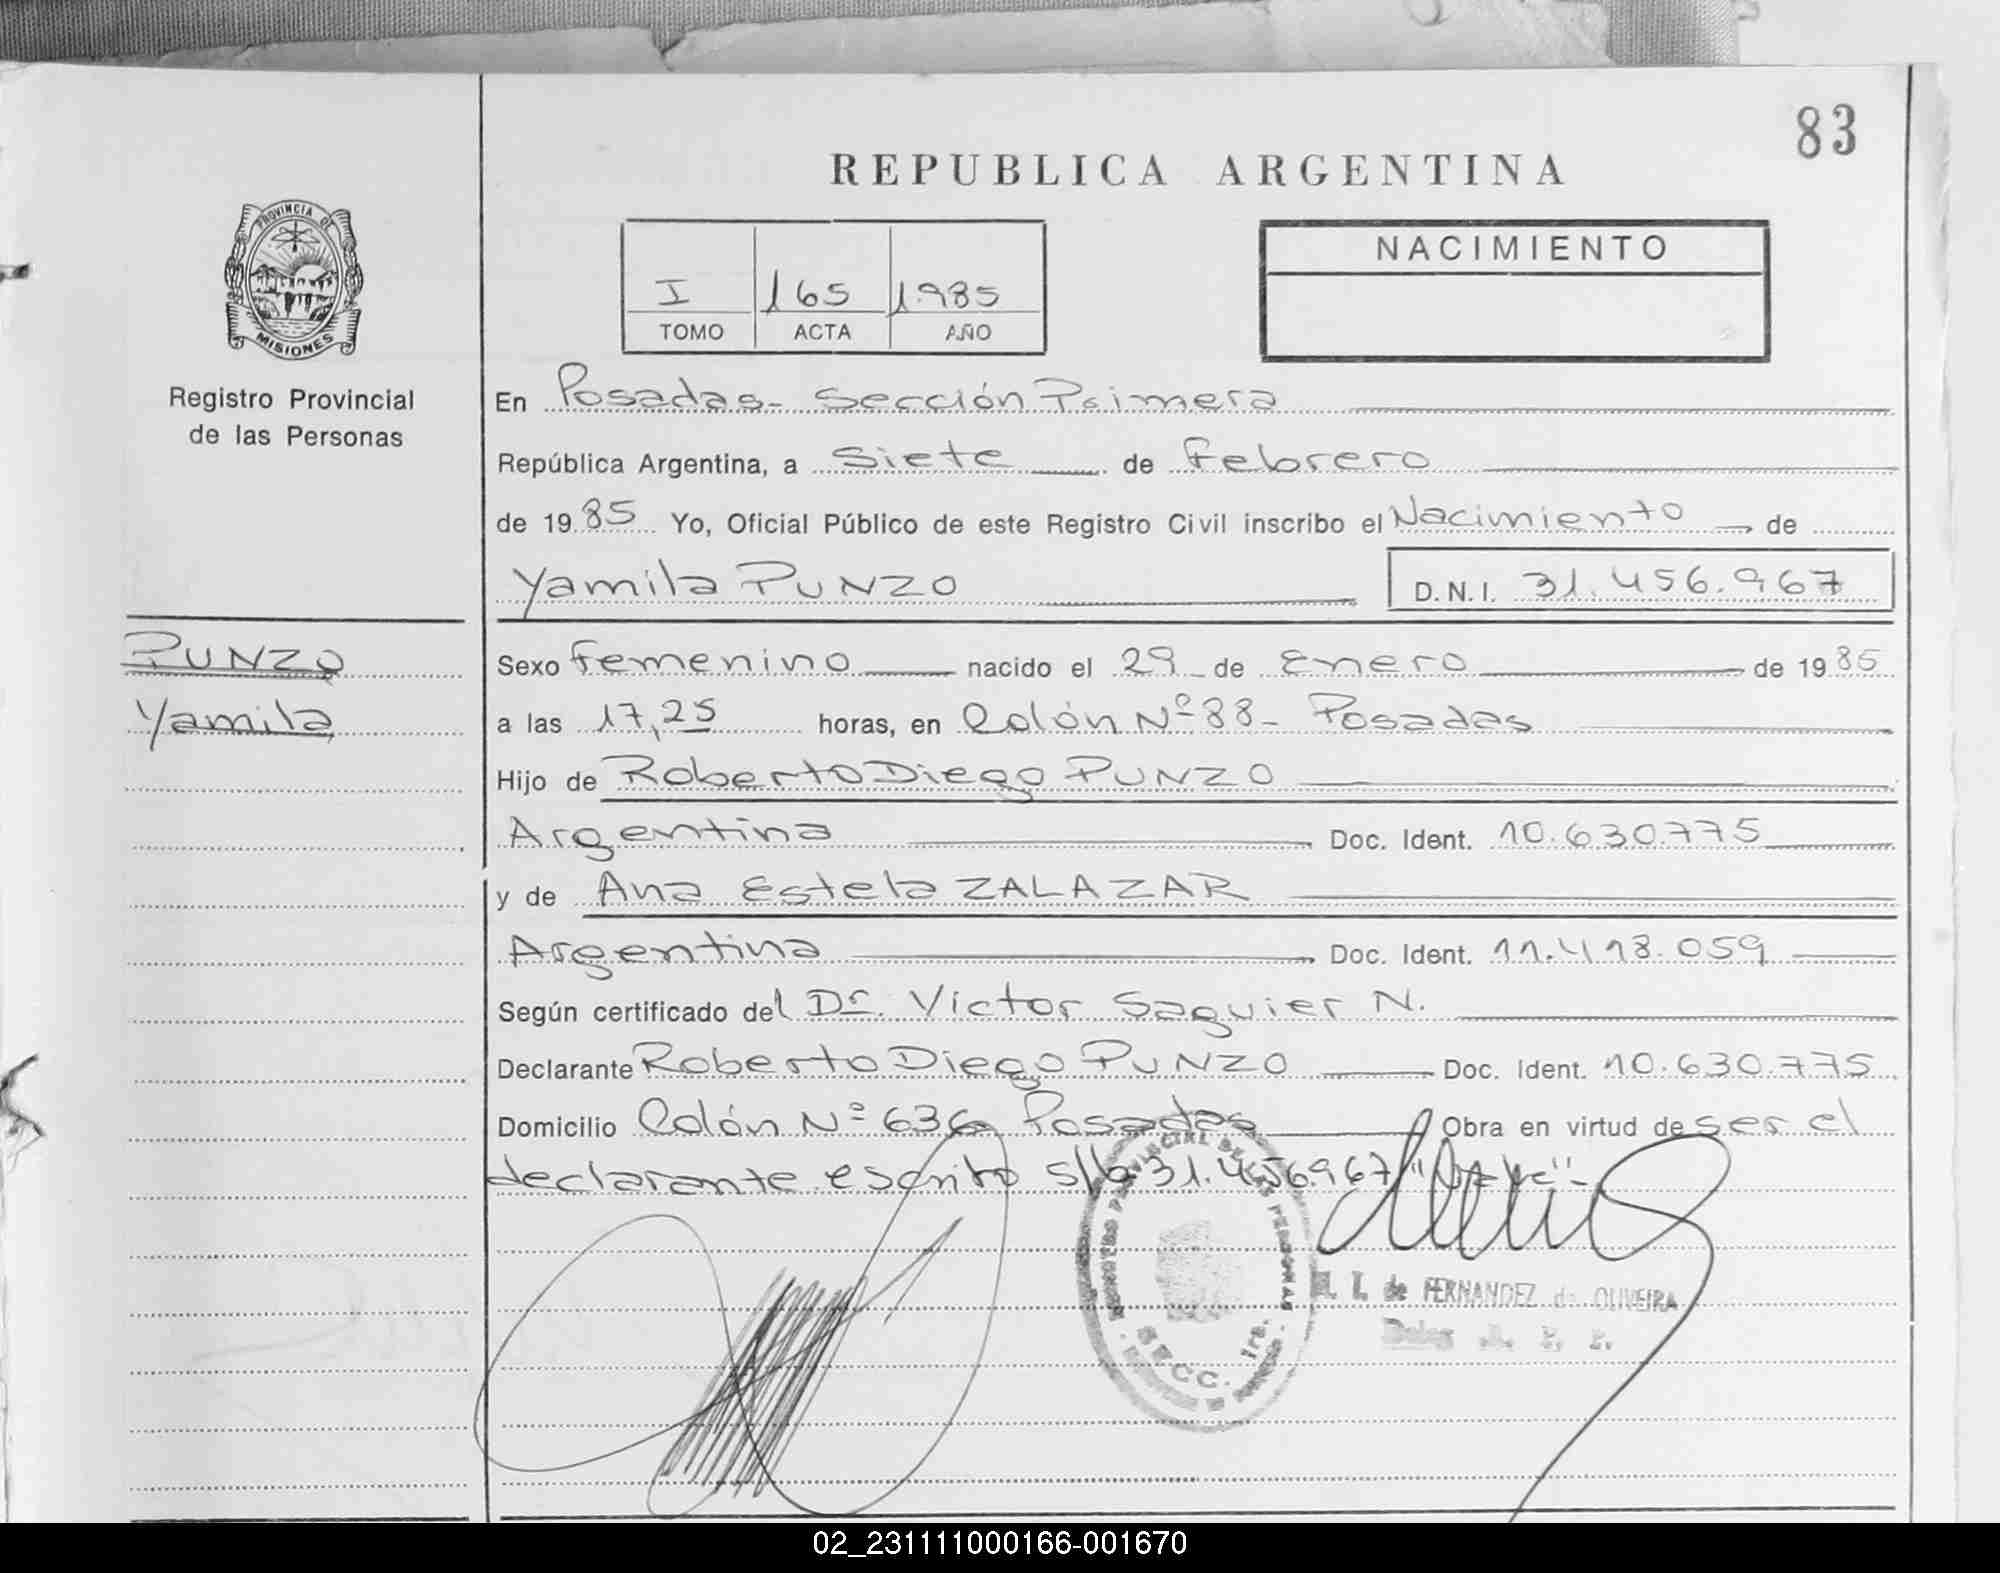 83
REPUBLICA ARGENTINA
PROVINCIA DE
MISIONES
Registro Provincial
de las Personas
I 165 1.985
TOMO ACTA AÑO
NACIMIENTO
En Posadas- Sección Primera
República Argentina, a siete de Febrero
de 1985 Yo, Oficial Público de este Registro Civil inscribo el Nacimiento de
Yamila PUNZO D.N.I. 31.456.967
PUNZO
Yamila
Sexo femenino nacido el 29 de Enero de 1985
a las 17,25 horas, en Colón Nº 88- Posadas
Hijo de Roberto Diego PUNZO
Argentina Doc. Ident. 10.630.775
y de Ana Estela ZALAZAR
Argentina Doc. Ident. 11.418.059
Según certificado del Dr. Victor Saguier N.
Declarante Roberto Diego PUNZO Doc. Ident. 10.630.775
Domicilio Colón Nº 636 Posadas Obra en virtud de ser el
declarante escrito s/b 31.456.967
REGISTRO PROVINCIAL DE LAS PERSONAS
SECC. 1ra.
de FERNANDEZ de OLIVEIRA
02_231111000166-001670